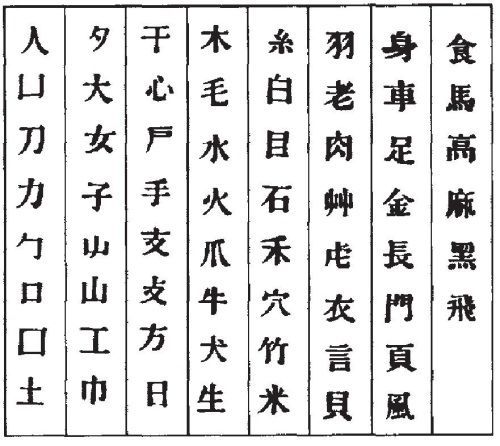 人凵刀力勹口囗土
夕大女子屮山工巾
干心戶手支攴方日
木毛水火爪牛犬生
糸白目石禾穴竹米
羽老肉艸虍衣言貝
身車足金長門頁風
食馬高麻黑飛